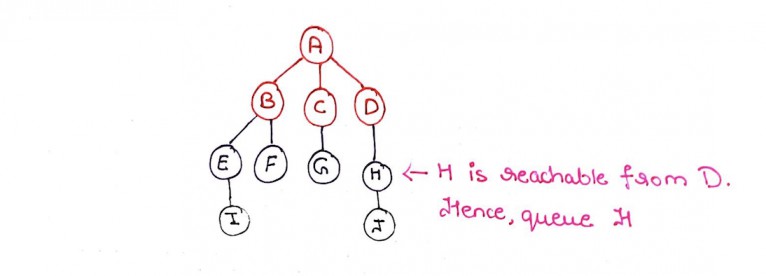 A
B C D
E F G H ← H is reachable from D.
Hence, queue H
I J